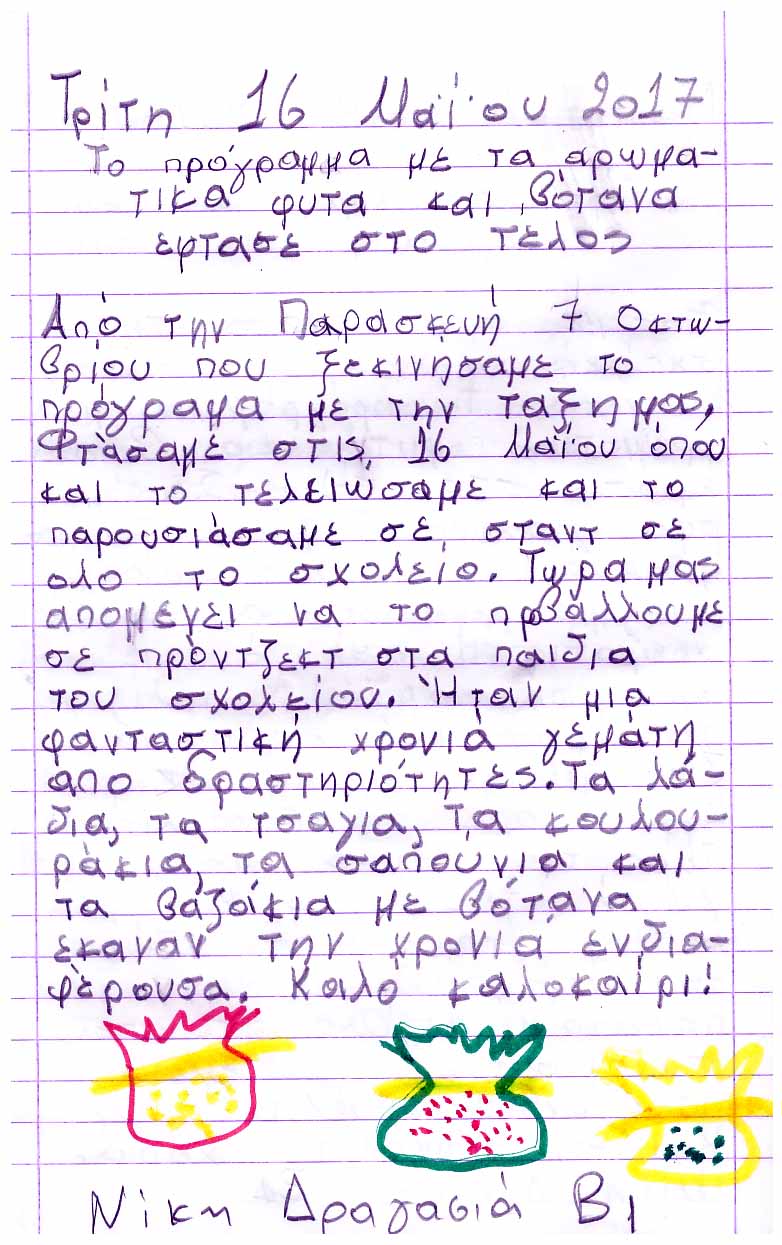 Τρίτη 16 Μαΐου 2017
Το πρόγραμμα με τα αρωμα-
τικά φυτα και βότανα
έφτασε στο τέλος
Από την Παρασκευή 7 Οκτω-
βρίου που ξεκινήσαμε το
πρόγραμα με την ταξη μας,
Φτάσαμε στις 16 Μαΐου όπου
και το τελειώσαμε και το
παρουσιάσαμε σε σταντ σε
ολο το σχολείο. Τωρα μας
απομένει να το προβάλλουμε
σε πρόντζεκτ στα παιδια
του σχολείου. Ήταν μια
φανταστική χρονιά γεμάτη
απο δραστηριότητες. Τα λά-
δια, τα τσαγια, τα κουλου-
ράκια, τα σαπουνια και
τα βαζάκια με βότανα
έκαναν την χρονιά ενδια-
φέρουσα. Καλό καλοκαίρι!
Νίκη Δραγασιά Β1